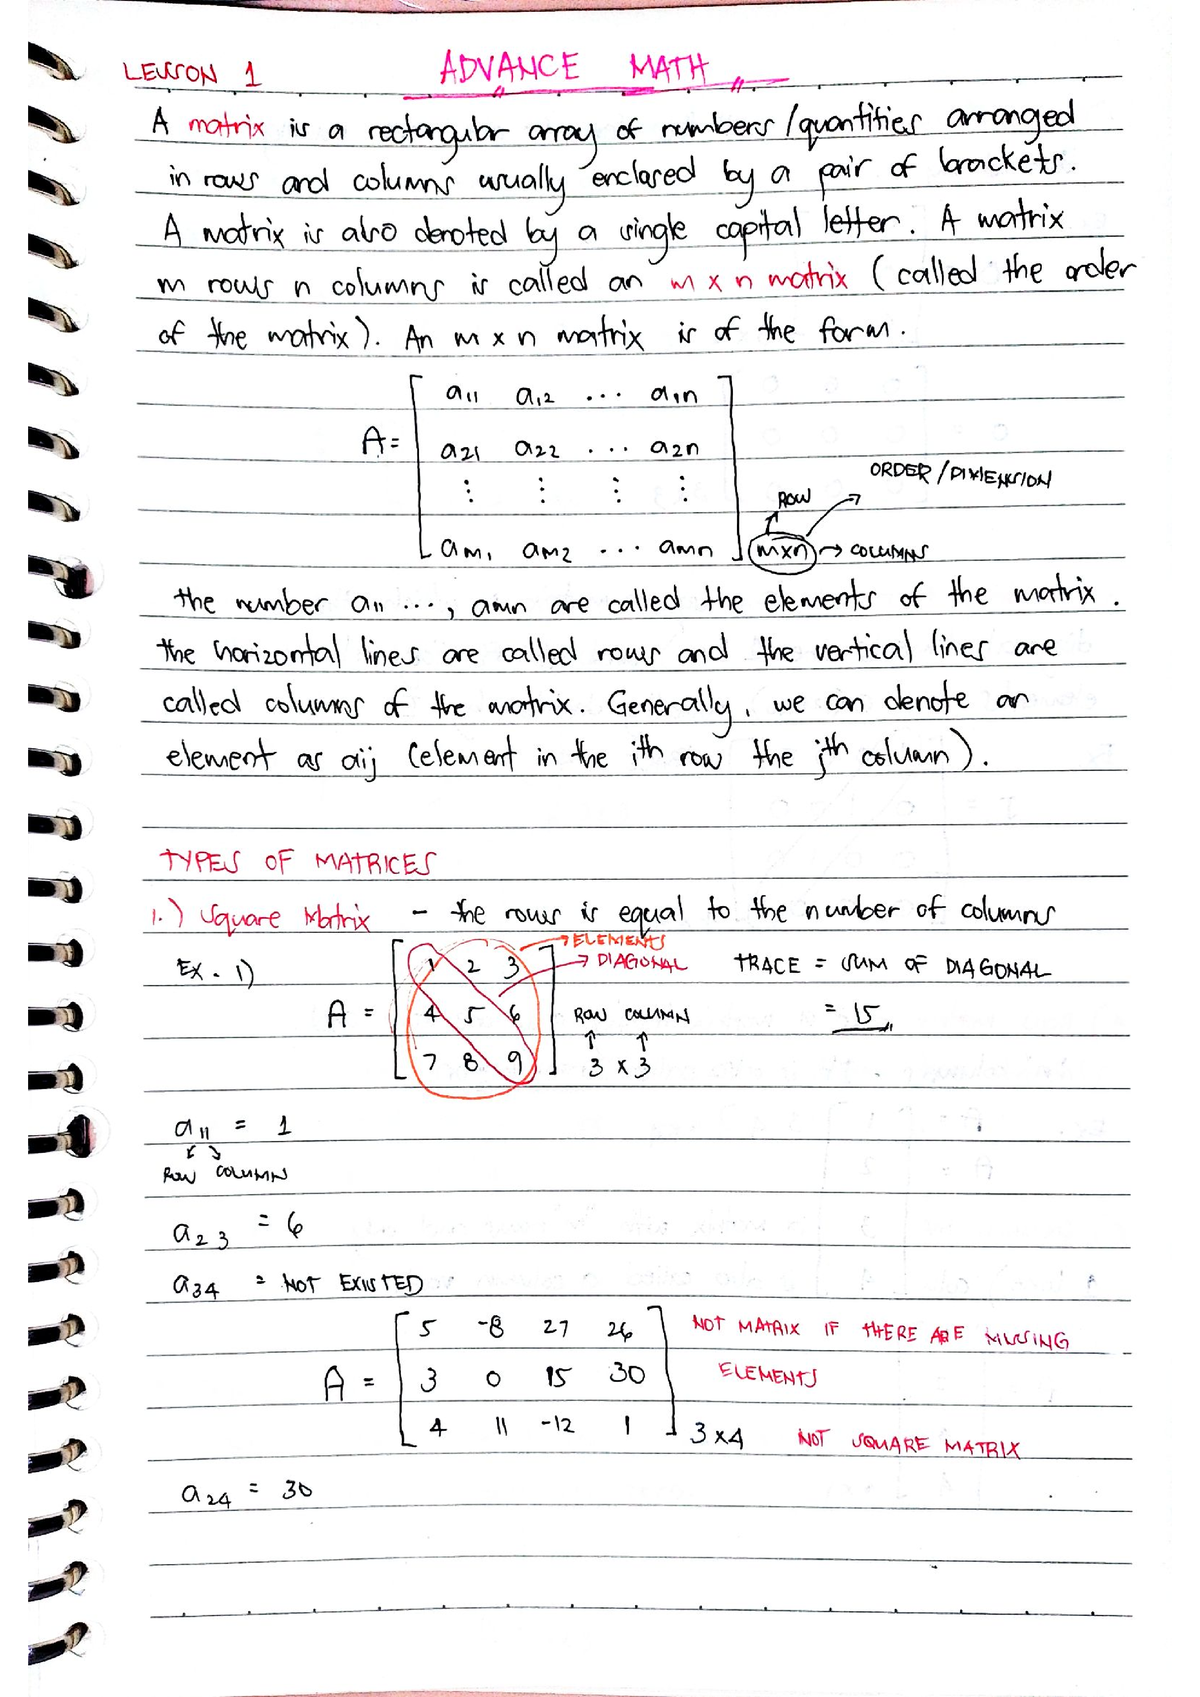 LESSON 1 ADVANCE MATH
A matrix is a rectangular array of numbers/quantities arranged
in rows and columns usually enclosed by a pair of brackets.
A matrix is also denoted by a single capital letter. A matrix
m rows n columns is called an m x n matrix (called the order
of the matrix). An m x n matrix is of the form.
a11 a12 ... a1n
A = a21 a22 ... a2n
⋮ ⋮ ⋮ ⋮
am1 am2 ... amn
ORDER/DIMENSION
ROW
mxn → COLUMNS
the number a11 ..., amn are called the elements of the matrix.
the horizontal lines are called rows and the vertical lines are
called columns of the matrix. Generally, we can denote an
element as aij (element in the ith row the jth column).
TYPES OF MATRICES
1.) Square Matrix - the rows is equal to the number of columns
→ ELEMENTS
Ex. 1) 1 2 3 → DIAGONAL TRACE = SUM OF DIAGONAL
A = 4 5 6 ROW COLUMN = 15
↑ ↑
7 8 9 3 x 3
a11 = 1
ROW COLUMN
a23 = 6
a34 = NOT EXISTED
5 -8 27 26 NOT MATRIX IF THERE ARE MISSING
A = 3 0 15 30 ELEMENTS
4 11 -12 1 3x4 NOT SQUARE MATRIX
a24 = 30